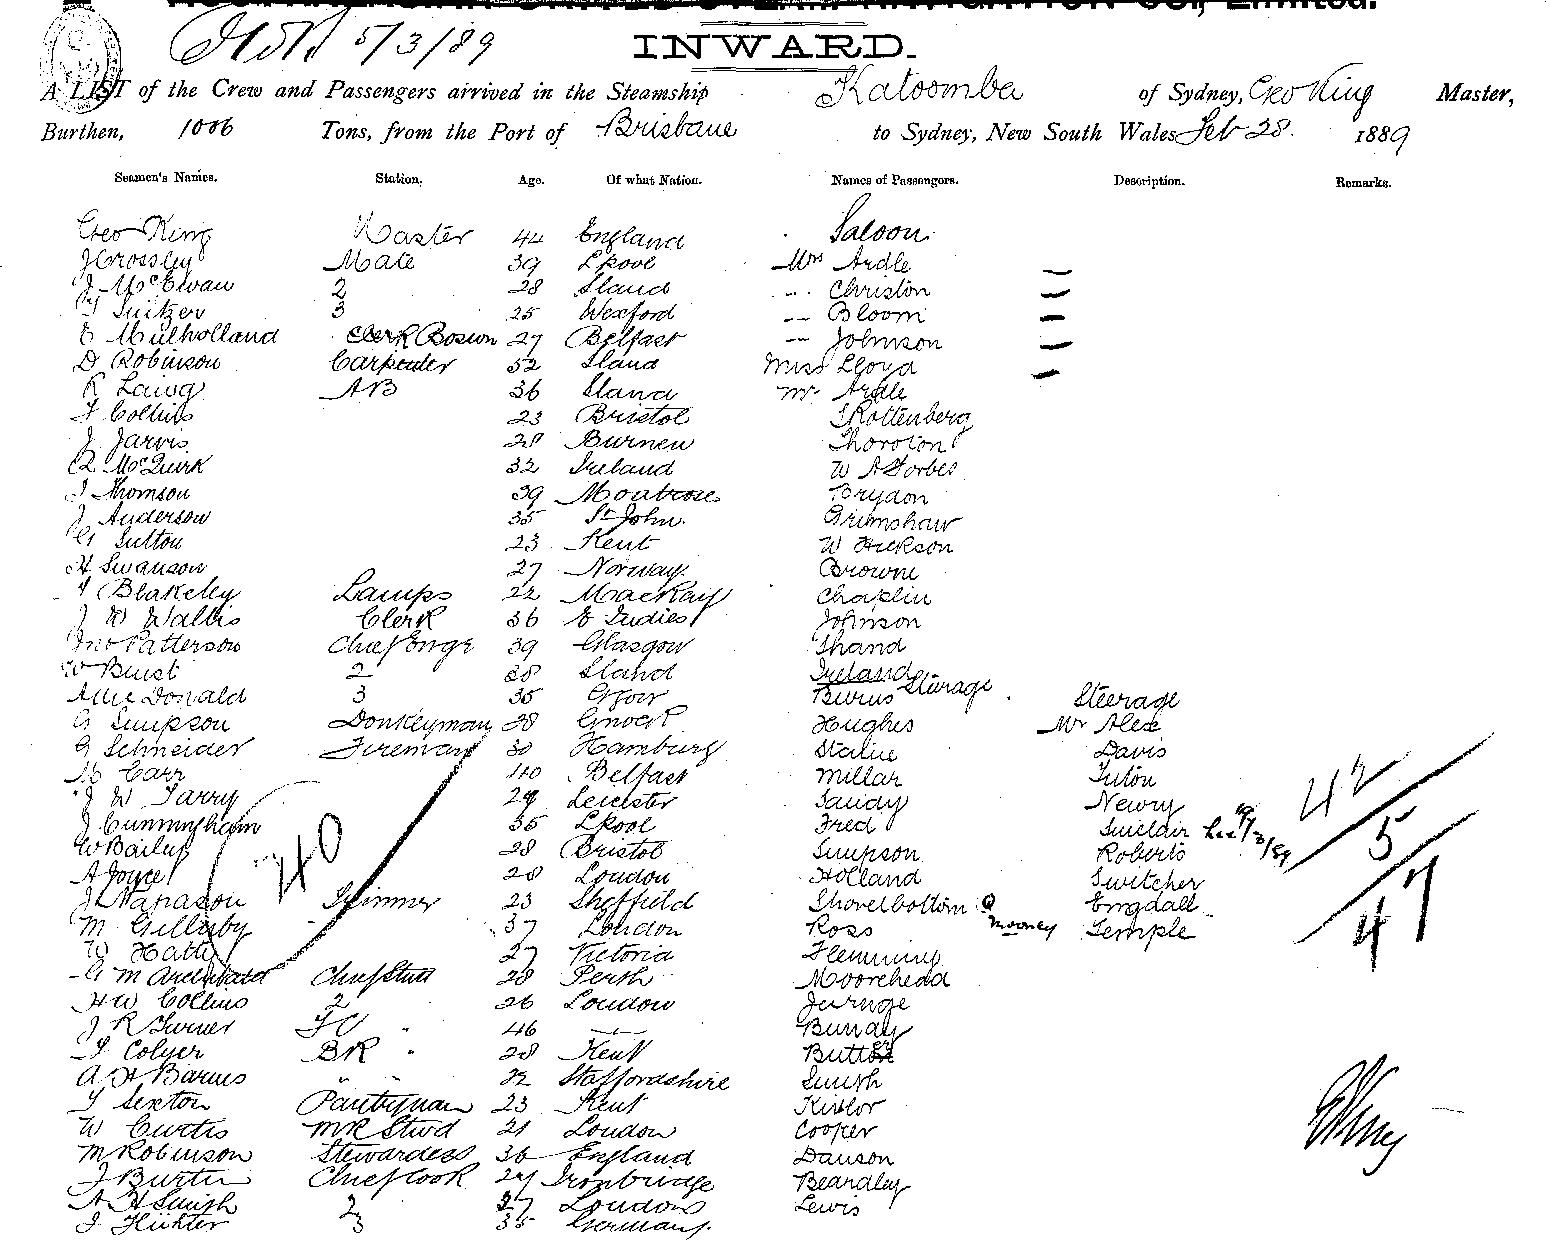 5/3/89
INWARD.
A LIST of the Crew and Passengers arrived in the Steamship Katoomba of Sydney, Geo King Master,
Burthen, 1006 Tons, from the Port of Brisbane to Sydney, New South Wales Feb 28. 1889
Seamen's Names. Station. Age. Of what Nation. Names of Passengers. Description. Remarks.
Geo King Master 44 England Saloon
J Crossley Mate 39 Lpool Mrs Ardle —
J McEwan 2 28 Sland " Christon —
3 25 Wexford " Bloom —
E Mulholland Clerk Bosun 27 Belfast " Johnson —
D Robinson Carpenter 52 Sland Miss Lloyd —
R Laing AB 36 Sland Mr Ardle
F Collins 23 Bristol Rottenberg
J Jarvis 28 Burnen Thoroton
McQuirk 32 Ireland W A Forbes
J Thomson 39 Montrose Brydon
J Anderson 35 St John Grimshaw
G Sutton 23 Kent W Hickson
H Swanson 27 Norway Browne
Blakeley Lamps 22 MacKay Chaplin
J W Wallis Clerk 36 E Indies Johnson
Jno Patterson Chief Engr 39 Glasgow Shand
W Buist 2 28 Sland Ireland
Donald 3 35 Ggow Burns Steerage Steerage
G Simpson Donkeyman 38 Gnock Hughes Mr Alex
G Schneider Fireman 30 Hamburg Davis
M Carr 40 Belfast Millar Tuton
J W Tarry 29 Leicester Newry
J Cunningham 35 Lpool Fred Sinclair
W Bailey 28 Bristol Simpson Roberts
A Joyce 28 London Holland Switcher
J Napason Trimmer 23 Sheffield Shovelbottom
M 37 London Ross Mooney Temple
W Hatty 27 Victoria Flemming
Chief Stwd 28 Perth Moorehead
H W Collins 2 26 London
J R Turner FC " 46 — Bunday
Colyer BR " 28 Kent Button
A H Barnes " " 22 Staffordshire Smith
Sexton Pantryman 23 Kent
W Curtis MR Stwd 21 London Cooper
M Robinson Stewardess 36 England Dawson
J Burton Chief Cook 27 Ironbridge Beardley
A H Smith 2 27 London Lewis
3 35 Germany
40
42
5
47